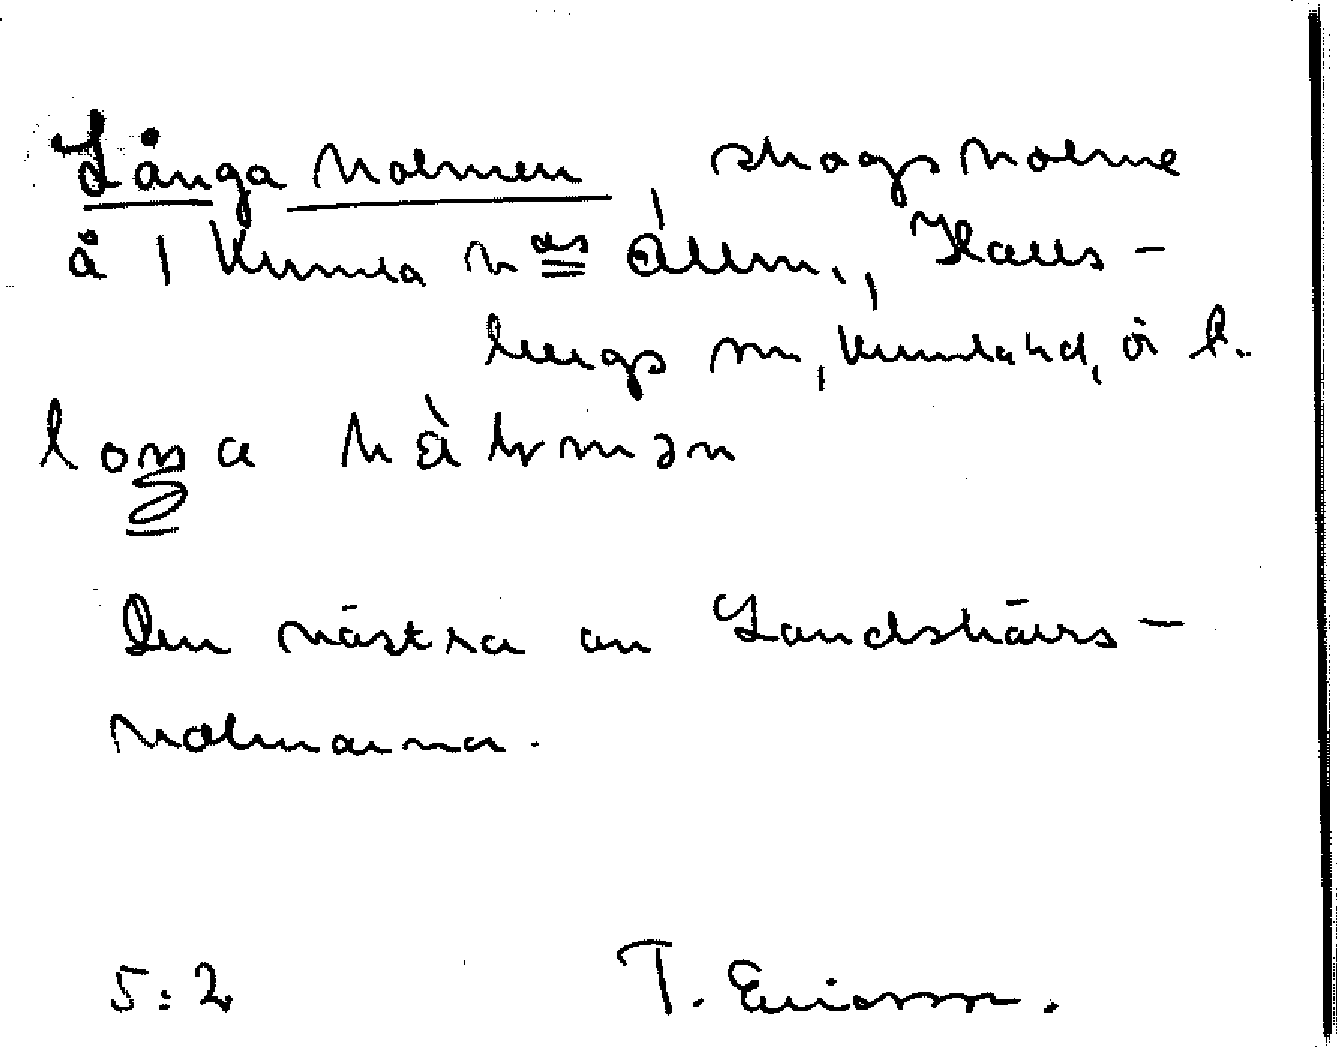 Långa holmen, skogsholme
å | Kumla hds allm., Halls-
bergs sn, Kumla hd, ör l.
loŋa hàlmən
Den västra av Landskärs-
holmarna.
5:2 T. Ericsson.